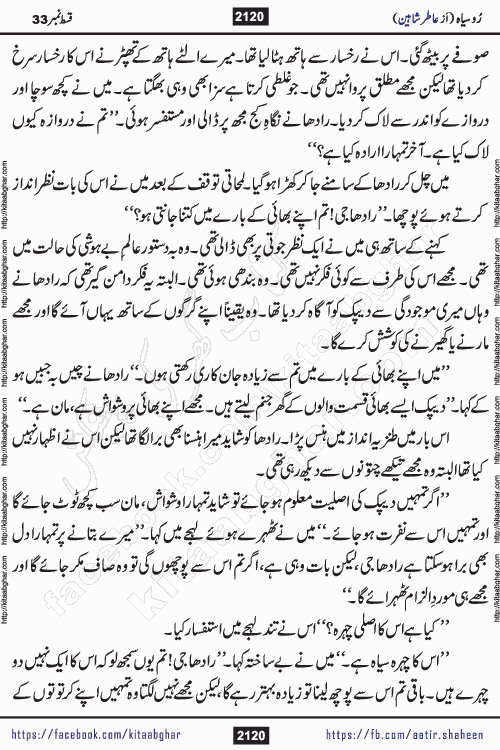 رُوسیاہ (اَز عاطر شاہین) 2120 قسط نمبر 33
صوفے پر بیٹھ گئی۔ اس نے رخسار سے ہاتھ ہٹا لیا تھا۔ میرے الٹے ہاتھ کے تھپڑ نے اس کا رخسار سرخ
کر دیا تھا لیکن مجھے مطلق پروا نہیں تھی۔ جو غلطی کرتا ہے سزا بھی وہی بھگتتا ہے۔ میں نے کچھ سوچا اور
دروازے کو اندر سے لاک کر دیا۔ رادھا نے نگاہِ کج مجھ پر ڈالی اور مستفسر ہوئی۔ ’’تم نے دروازہ کیوں
لاک کیا ہے۔ آخر تمہارا ارادہ کیا ہے؟‘‘
میں چل کر رادھا کے سامنے جا کر کھڑا ہو گیا۔ لمحاتی توقف کے بعد میں نے اس کی بات نظر انداز
کرتے ہوئے پوچھا۔ ’’رادھا جی! تم اپنے بھائی کے بارے میں کتنا جانتی ہو؟‘‘
کہنے کے ساتھ ہی میں نے ایک نظر جوتی پر بھی ڈالی تھی۔ وہ بہ دستور عالمِ بے ہوشی کی حالت میں
تھی۔ مجھے اس کی طرف سے کوئی فکر نہیں تھی۔ وہ بندھی ہوئی تھی۔ البتہ یہ فکر دامن گیر تھی کہ رادھا نے
وہاں میری موجودگی سے دیپک کو آگاہ کر دیا تھا۔ وہ یقیناً اپنے گرگوں کے ساتھ یہاں آئے گا اور مجھے
مارنے یا گھیرنے کی کوشش کرے گا۔
’’میں اپنے بھائی کے بارے میں تم سے زیادہ جان کاری رکھتی ہوں۔‘‘ رادھا نے چیں بہ جبیں ہو
کے کہا۔ ’’دیپک ایسے بھائی قسمت والوں کے گھر جنم لیتے ہیں۔ مجھے اپنے بھائی پر وشواش ہے، مان ہے۔‘‘
اس بار میں طنزیہ انداز میں ہنس پڑا۔ رادھا کو شاید میرا ہنسنا بھی برا لگا تھا لیکن اس نے اظہار نہیں
کیا تھا البتہ وہ مجھے تیکھے چتونوں سے دیکھ رہی تھی۔
’’اگر تمہیں دیپک کی اصلیت معلوم ہو جائے تو شاید تمہارا وشواش، مان سب کچھ ٹوٹ جائے گا
اور تمہیں اس سے نفرت ہو جائے۔‘‘ میں نے ٹھہرے ہوئے لہجے میں کہا۔ ’’میرے بتانے پر تمہارا دل
بھی برا ہو سکتا ہے رادھا جی، لیکن بات وہی ہے، اگر تم اس سے پوچھوں گی تو وہ صاف مکر جائے گا اور
مجھے ہی موردِ الزام ٹھہرائے گا۔‘‘
’’کیا ہے اس کا اصلی چہرہ؟‘‘ اس نے تند لہجے میں استفسار کیا۔
’’اس کا چہرہ سیاہ ہے۔‘‘ میں نے بے ساختہ کہا۔ ’’رادھا جی! تم یوں سمجھ لو کہ اس کا ایک نہیں دو
چہرے ہیں۔ باقی تم اس سے پوچھ لینا تو زیادہ بہتر رہے گا، لیکن مجھے نہیں لگتا وہ تمہیں اپنے کرتوتوں کے
https://facebook.com/kitaabghar 2120 https://fb.com/aatir.shaheen
http://kitaabghar.com http://kitaabghar.com http://kitaabghar.com http://kitaabghar.com http://kitaabghar.com